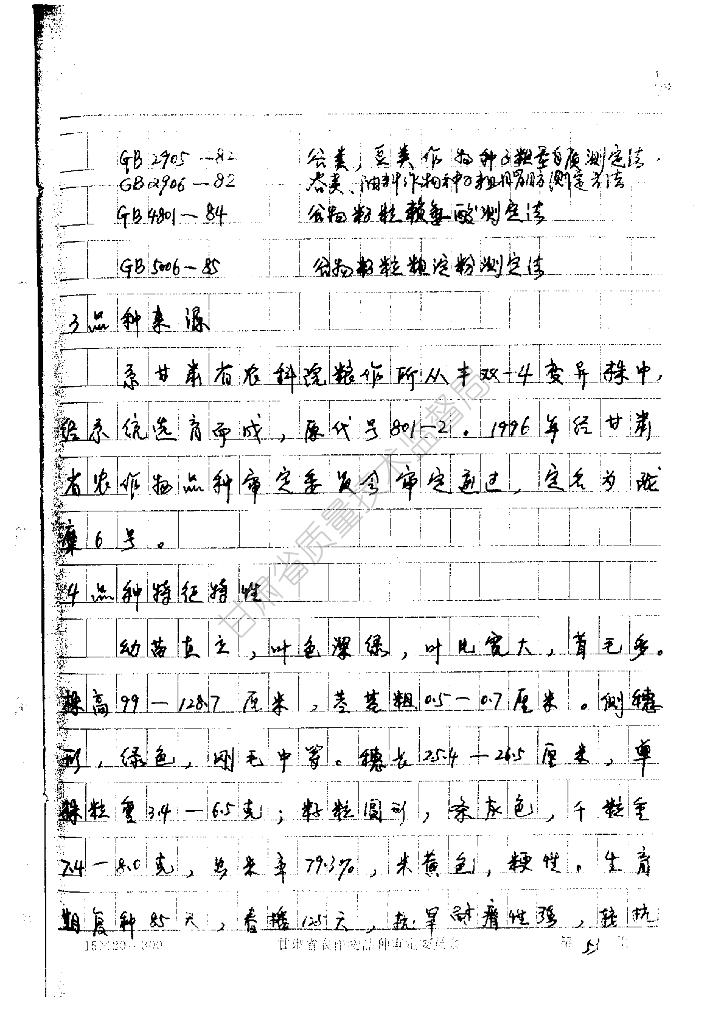 GB 2905—82 谷类、豆类作物种子粗蛋白质测定法
GB 2906—82 谷类、油料作物种子粗脂肪测定方法
GB 4801—84 谷物籽粒赖氨酸测定法
GB 5006—85 谷物籽粒粗淀粉测定法
3 品种来源
系甘肃省农科院粮作所从丰双-4变异株中,
经系统选育而成,原代号801-2。1996年经甘肃
省农作物品种审定委员会审定通过,定名为陇
糜6号。
4 品种特征特性
幼苗直立,叶色深绿,叶片宽大,茸毛多。
株高99—128.7厘米,茎基粗0.5—0.7厘米。侧穗
形,绿色,刚毛中等。穗长25.4—26.5厘米,单
株粒重3.4—6.5克;籽粒圆形,条灰色,千粒重
7.4—8.0克,出米率79.3%,米黄色,粳性。生育
期复种85天,春播125天,抗旱耐瘠性强,较抗
15×20=300 甘肃省农作物品种审定委员会 第 51 页
甘肃省质量技术监督局